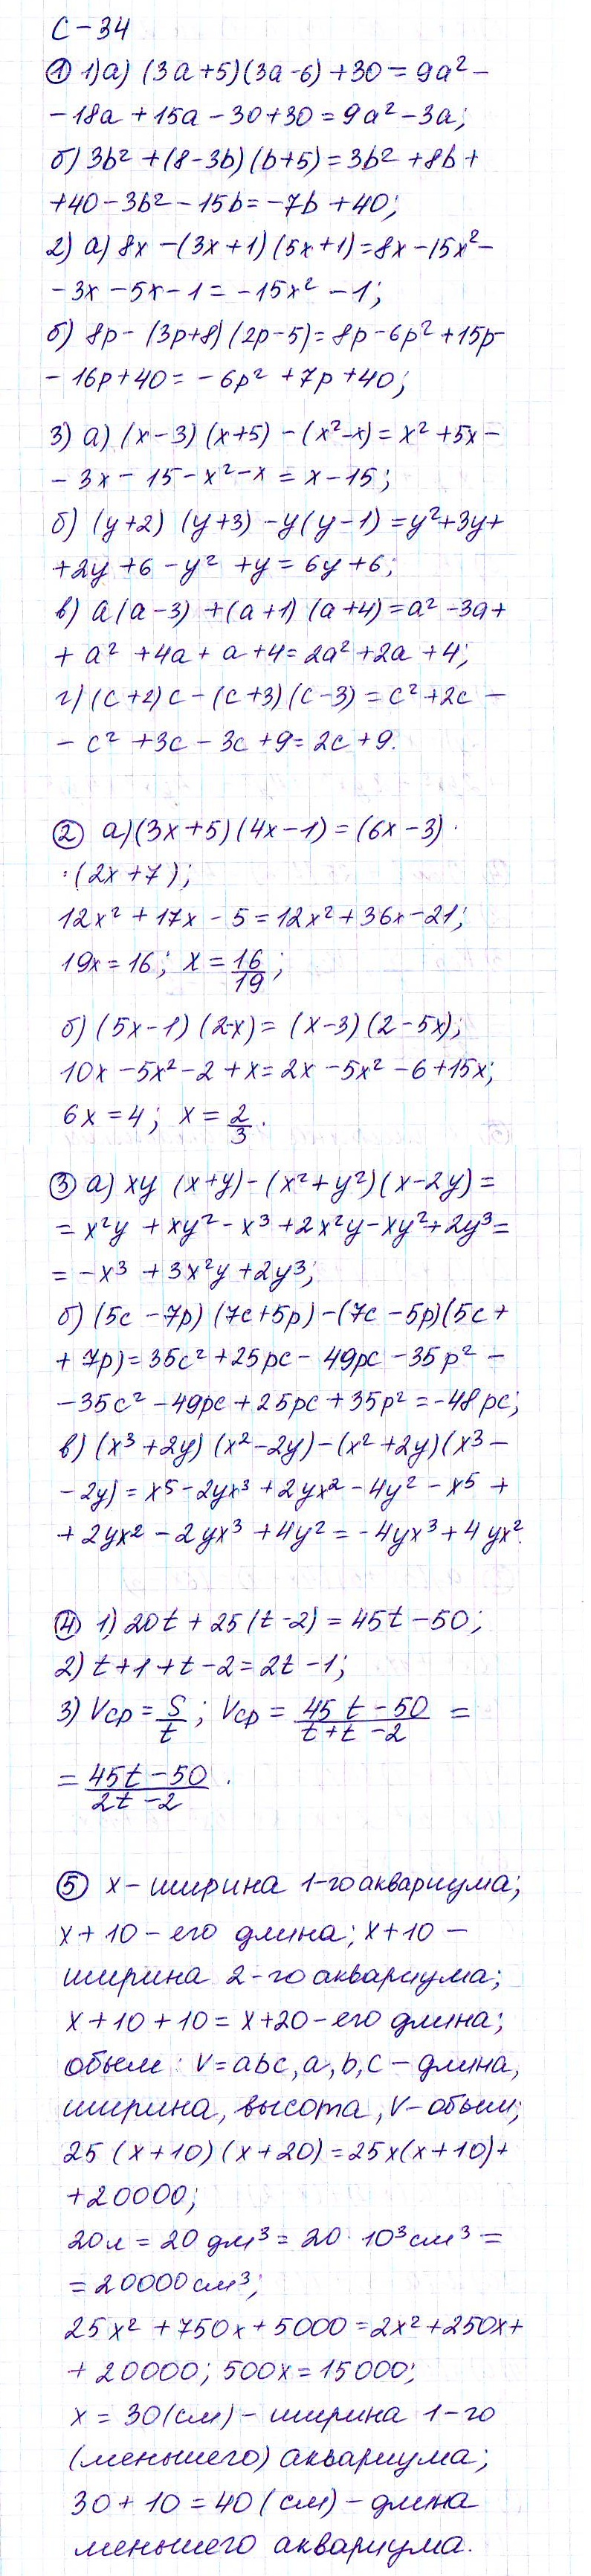 С-34
① 1) а) (3a+5)(3a-6)+30 = 9a² -
- 18a + 15a - 30 + 30 = 9a² - 3a;
б) 3b² + (8-3b)(b+5) = 3b² + 8b +
+40 - 3b² - 15b = -7b + 40;
2) а) 8x - (3x+1)(5x+1) = 8x - 15x² -
- 3x - 5x - 1 = -15x² - 1;
б) 8p - (3p+8)(2p-5) = 8p - 6p² + 15p -
- 16p + 40 = -6p² + 7p + 40;
3) а) (x-3)(x+5) - (x²-x) = x² + 5x -
- 3x - 15 - x² - x = x - 15;
б) (y+2)(y+3) - y(y-1) = y² + 3y +
+ 2y + 6 - y² + y = 6y + 6;
в) a(a-3) + (a+1)(a+4) = a² - 3a +
+ a² + 4a + a + 4 = 2a² + 2a + 4;
г) (c+2)c - (c+3)(c-3) = c² + 2c -
- c² + 3c - 3c + 9 = 2c + 9.
② а) (3x+5)(4x-1) = (6x-3) ·
· (2x+7);
12x² + 17x - 5 = 12x² + 36x - 21;
19x = 16; x = 16/19;
б) (5x-1)(2-x) = (x-3)(2-5x);
10x - 5x² - 2 + x = 2x - 5x² - 6 + 15x;
6x = 4; x = 2/3.
③ а) xy (x+y) - (x²+y²)(x-2y) =
= x²y + xy² - x³ + 2x²y - xy² + 2y³ =
= -x³ + 3x²y + 2y³;
б) (5c - 7p)(7c+5p) - (7c - 5p)(5c +
+ 7p) = 35c² + 25pc - 49pc - 35p² -
- 35c² - 49pc + 25pc + 35p² = -48pc;
в) (x³+2y)(x²-2y) - (x²+2y)(x³ -
- 2y) = x⁵ - 2yx³ + 2yx² - 4y² - x⁵ +
+ 2yx² - 2yx³ + 4y² = -4yx³ + 4yx².
④ 1) 20t + 25(t-2) = 45t - 50;
2) t+1+t-2 = 2t-1;
3) Vср = S/t; Vср = (45t - 50)/(t+t-2) =
= (45t-50)/(2t-2).
⑤ x - ширина 1-го аквариума;
x+10 - его длина; x+10 -
ширина 2-го аквариума;
x+10+10 = x+20 - его длина;
обьем : V=abc, a, b, c - длина,
ширина, высота, V - обьем;
25 (x+10)(x+20) = 25x(x+10) +
+20000;
20л = 20 дм³ = 20 · 10³ см³ =
= 20000 см³;
25x² + 750x + 5000 = 2x² + 250x +
+ 20000; 500x = 15000;
x = 30 (см) - ширина 1-го
(меньшего) аквариума;
30 + 10 = 40 (см) - длина
меньшего аквариума.